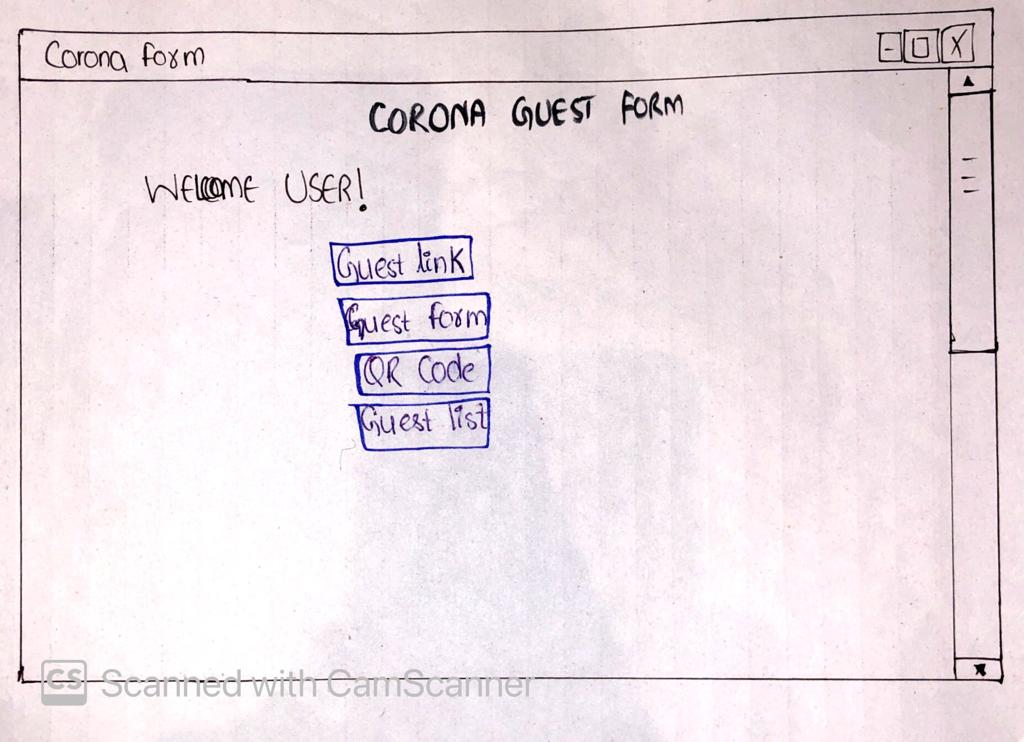 Corona form
- X
CORONA GUEST FORM
WELCOME USER!
Guest link
Guest form
QR Code
Guest list
CS Scanned with CamScanner